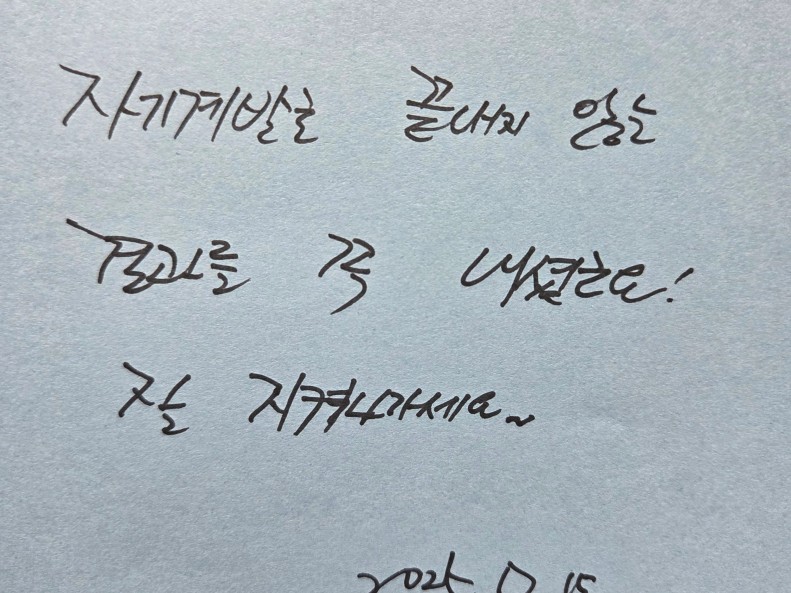 자기계발로 끝내지 않는
결과를 꼭 내셨군요!
잘 지켜나가세요~